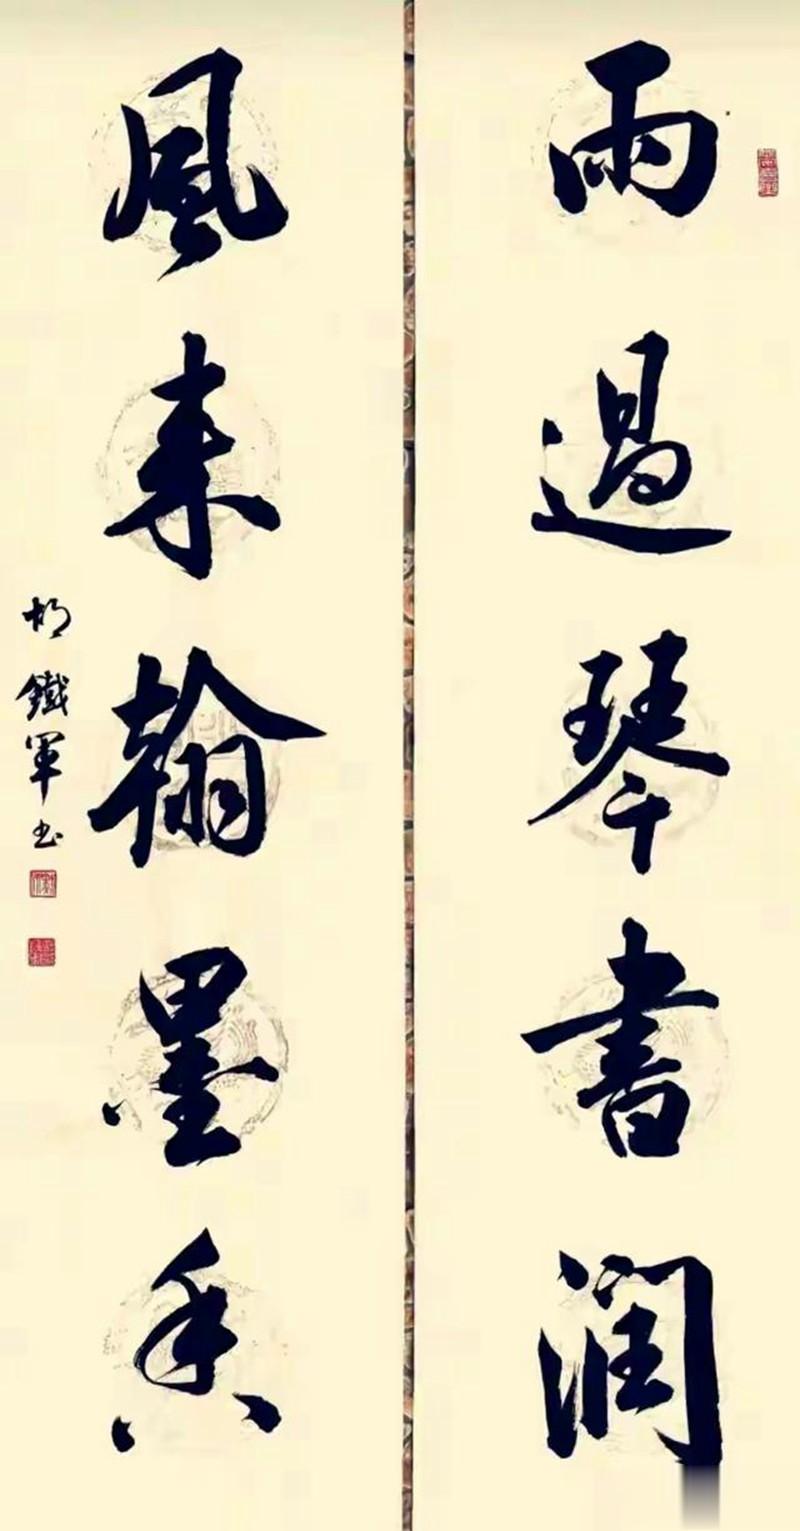 雨過琴書潤
風来翰墨香
胡鐵軍书